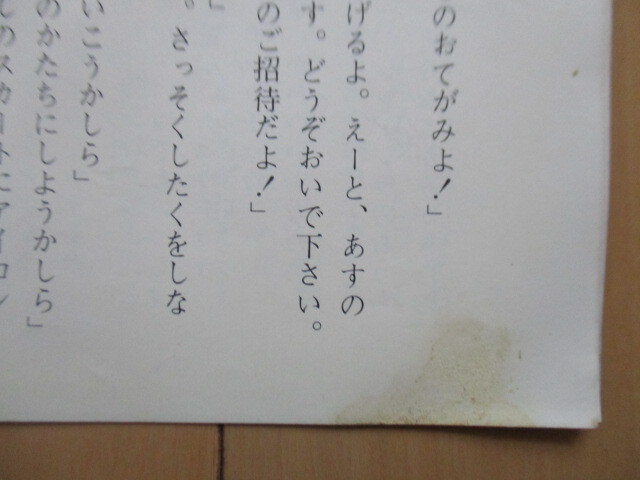 のおてがみよ！」
げるよ。えーと、あすの
す。どうぞおいで下さい。
のご招待だよ！」
」
。さっそくしたくをしな
いこうかしら」
のかたちにしようかしら」
のスカートにアイロン